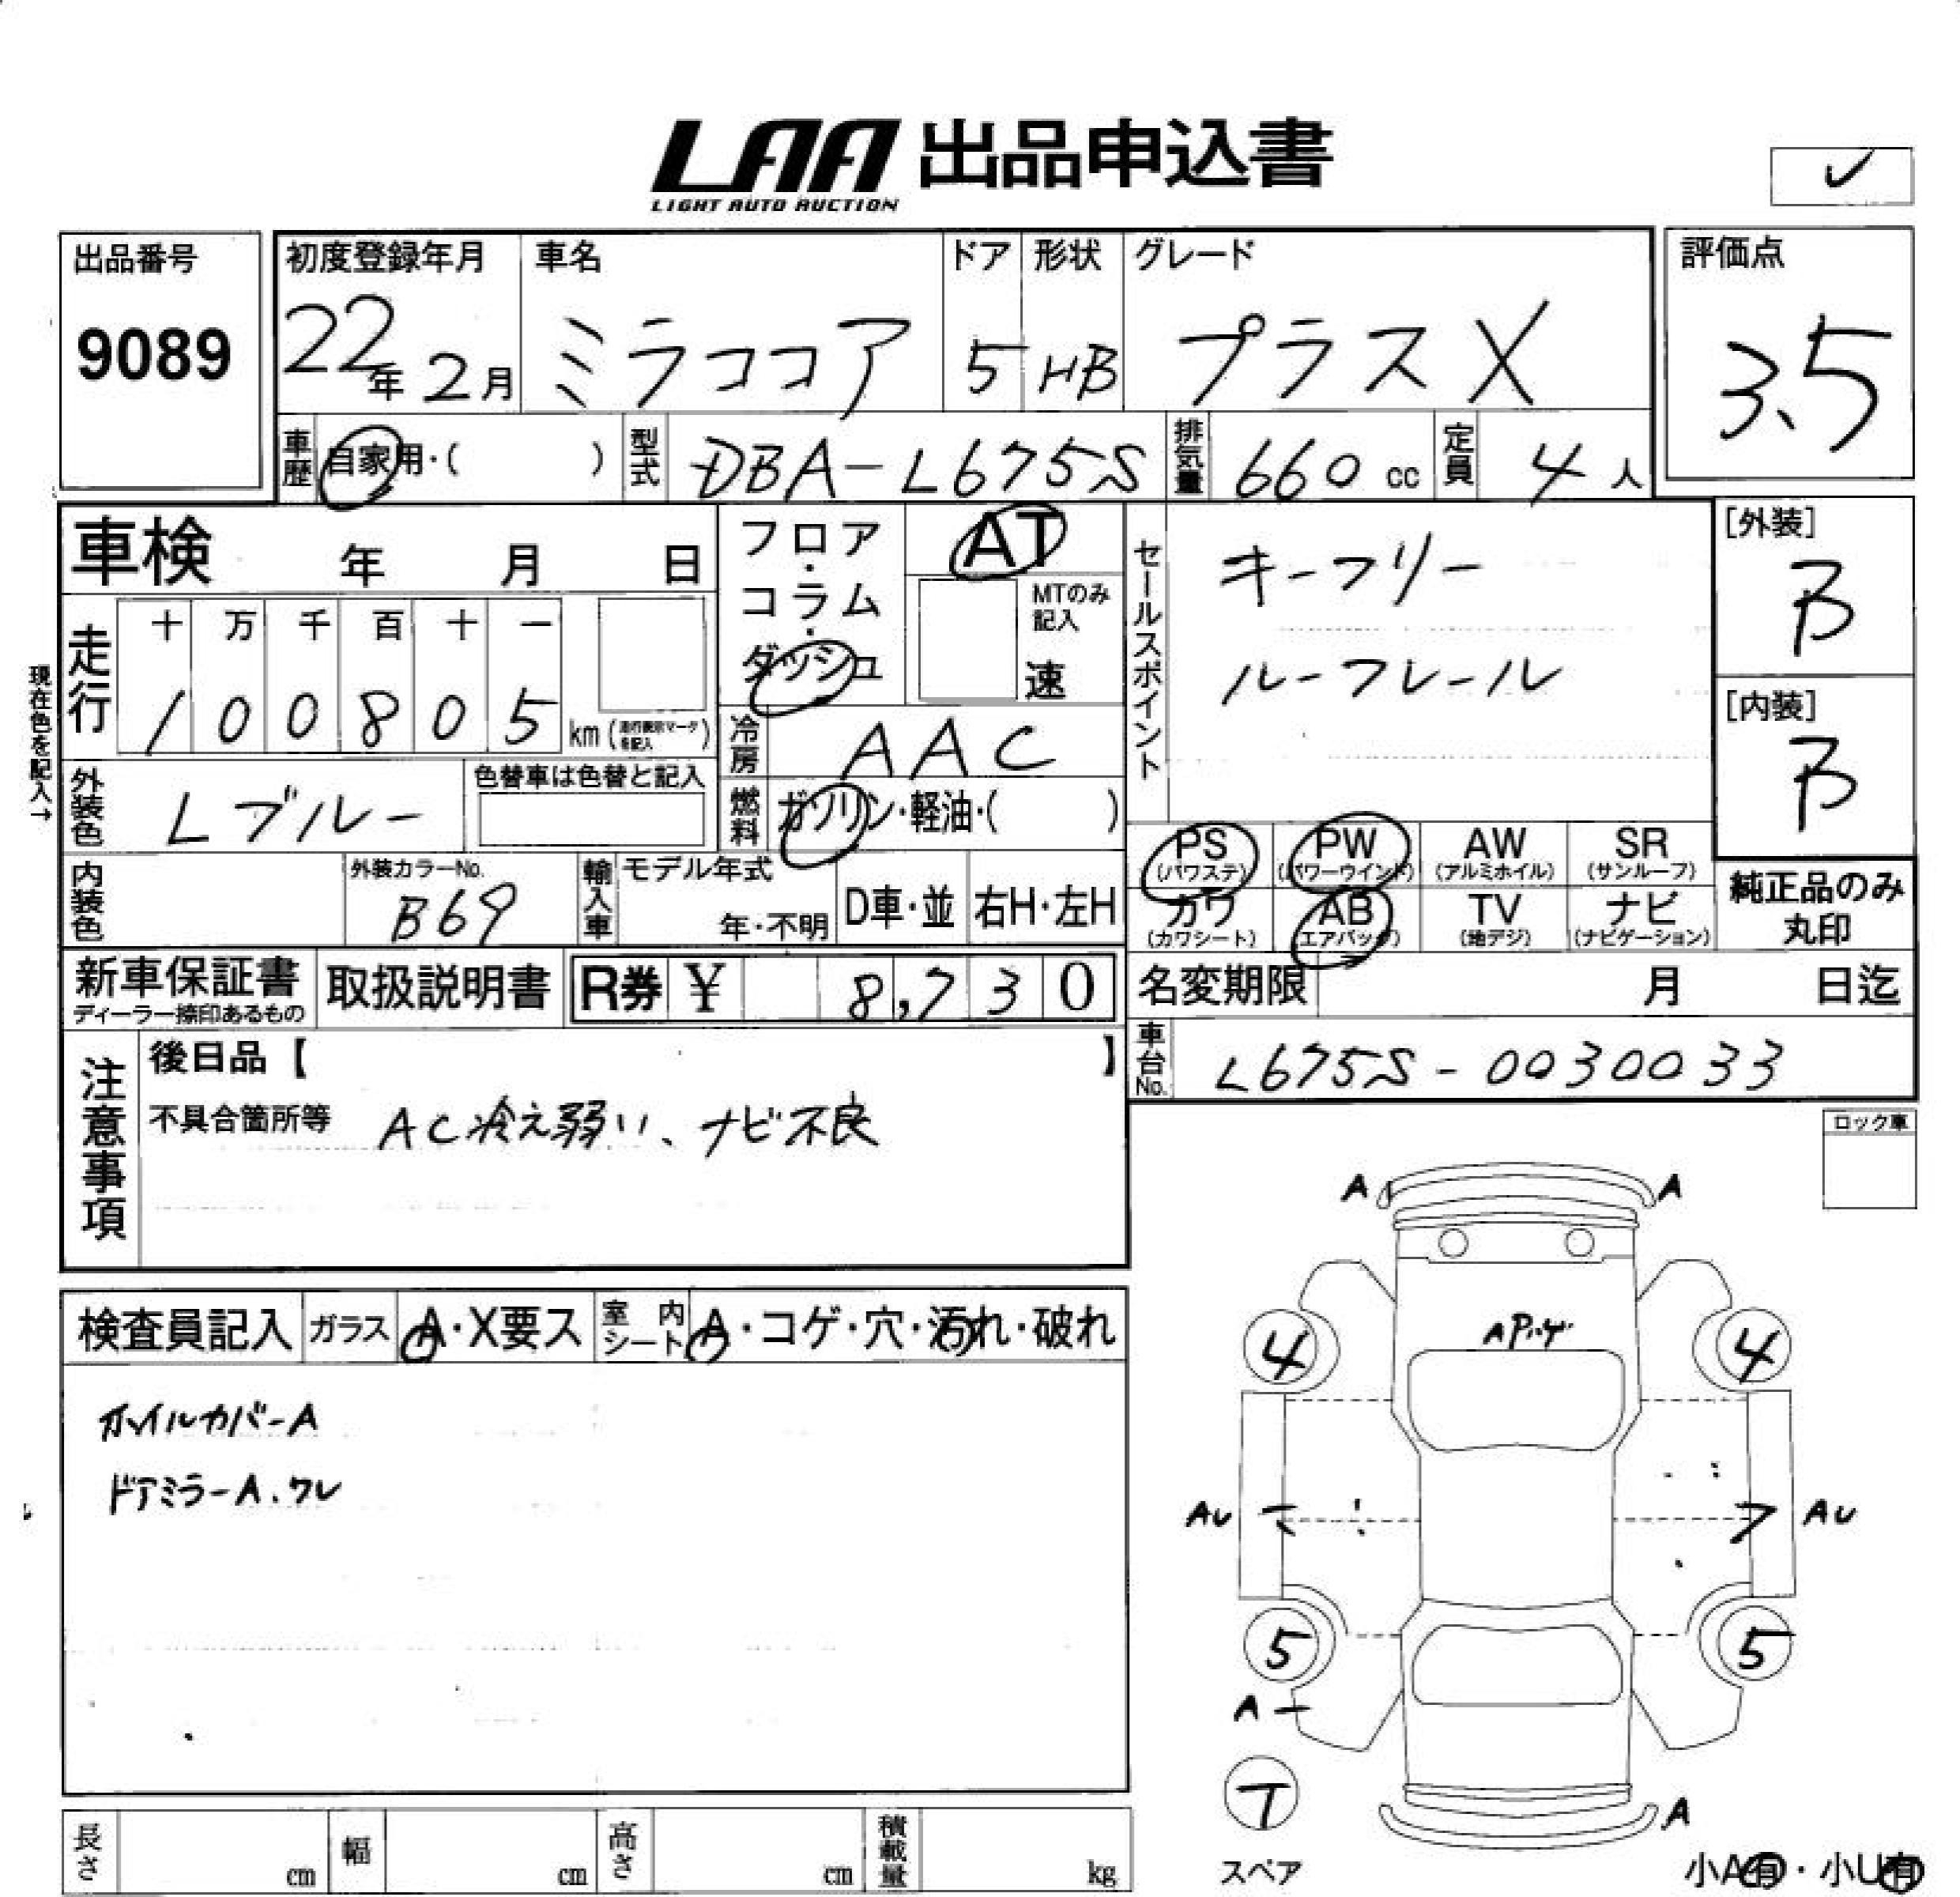 LAA 出品申込書
LIGHT AUTO AUCTION
出品番号
9089
初度登録年月
22年 2月
車名
ミラココア
ドア
5
形状
HB
グレード
プラス X
評価点
3.5
車歴 自家用・( )
型式 DBA-L675S
排気量 660 cc
定員 4人
車検 年 月 日
フロア・コラム・ダッシュ
AT
MTのみ記入
速
セールスポイント
キーフリー
ルーフレール
[外装]
B
[内装]
B
現在色を記入→
走行
十 万 千 百 十 一
1 0 0 8 0 5 km (走行表示マークを記入)
冷房 AAC
外装色 Lブルー
色替車は色替と記入
燃料 ガソリン・軽油・( )
PS (パワステ)
PW (パワーウインド)
AW (アルミホイル)
SR (サンルーフ)
カワ (カワシート)
AB (エアバッグ)
TV (地デジ)
ナビ (ナビゲーション)
純正品のみ丸印
内装色
外装カラーNo.
B69
輸入車
モデル年式
年・不明
D車・並
右H・左H
新車保証書
ディーラー捺印あるもの
取扱説明書
R券 ¥ 8,730
名変期限 月 日迄
車台No. L675S-0030033
注意事項
後日品【 】
不具合箇所等 AC冷え弱い、ナビ不良
ロック車
A A
APハゲ
4 4
AU AU
5 5
A
T
スペア
A
小A有・小U有
検査員記入
ガラス A・X要ス
室内シート A・コゲ・穴・汚れ・破れ
ホイルカバーA
ドアミラーA.ワレ
長さ cm
幅 cm
高さ cm
積載量 kg